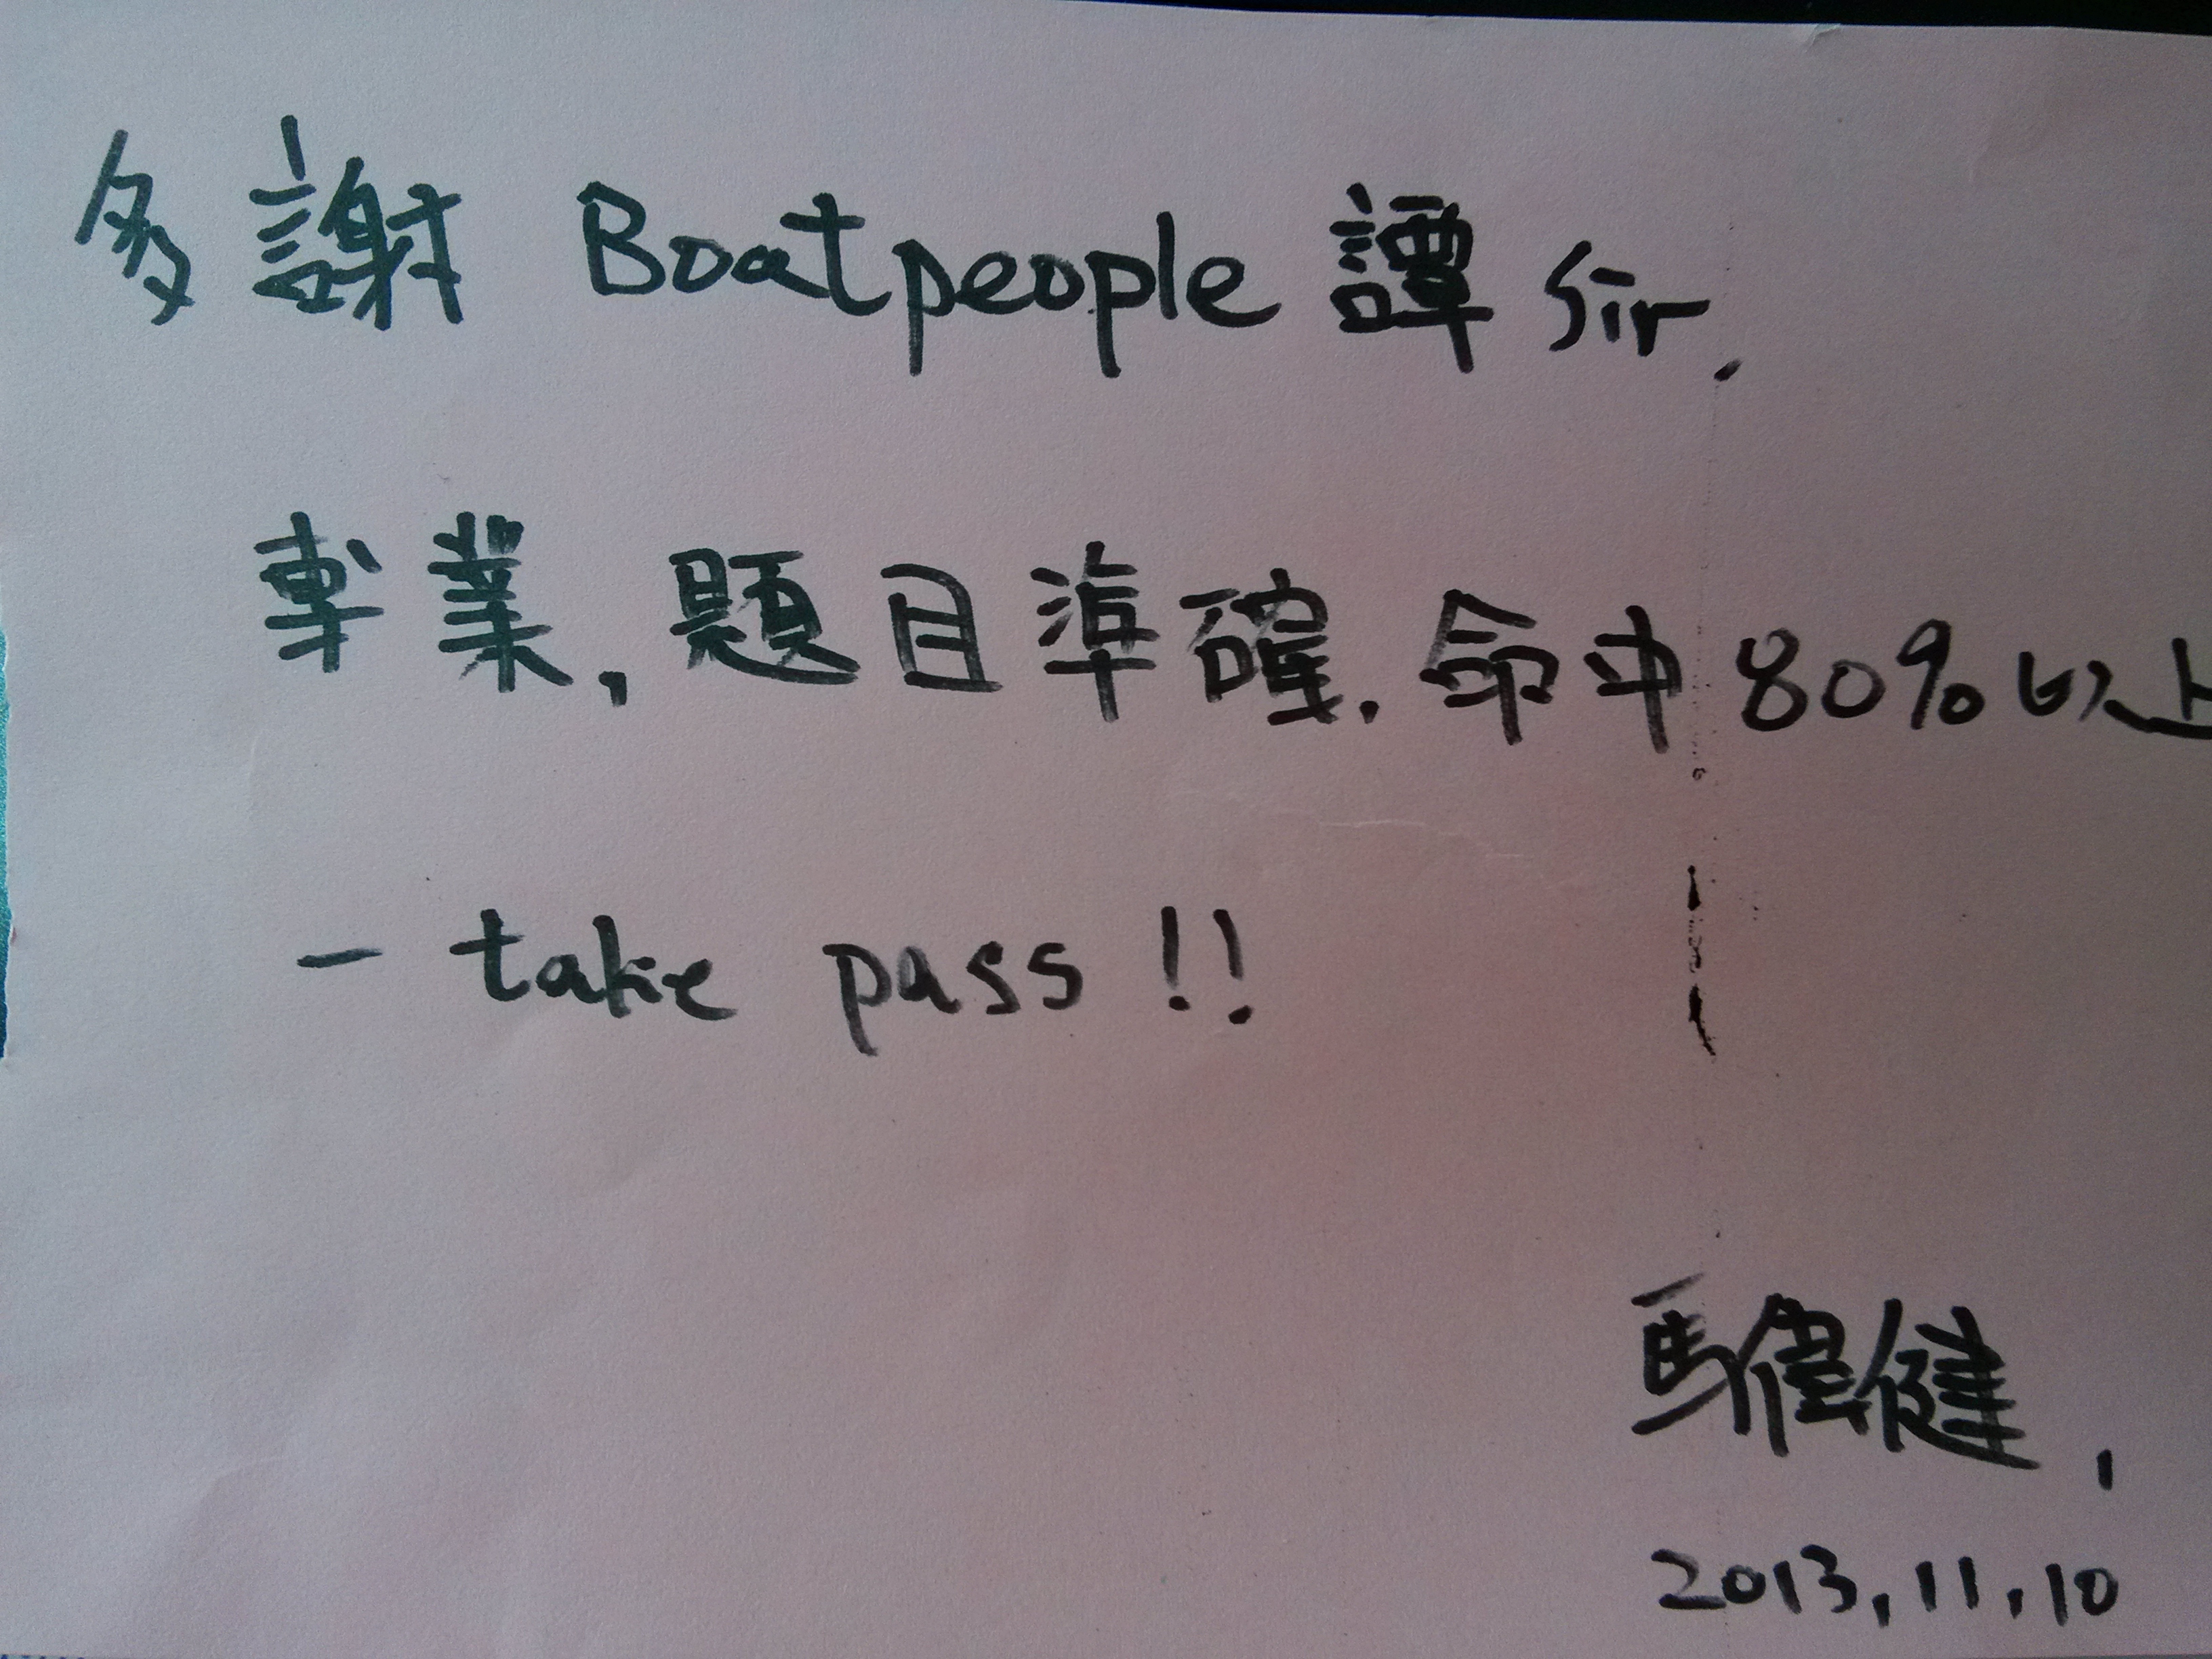 多謝 Boatpeople 譚 Sir.
專業,題目準確.命中80%以上
- take pass !!
馬偉健,
2013.11.10